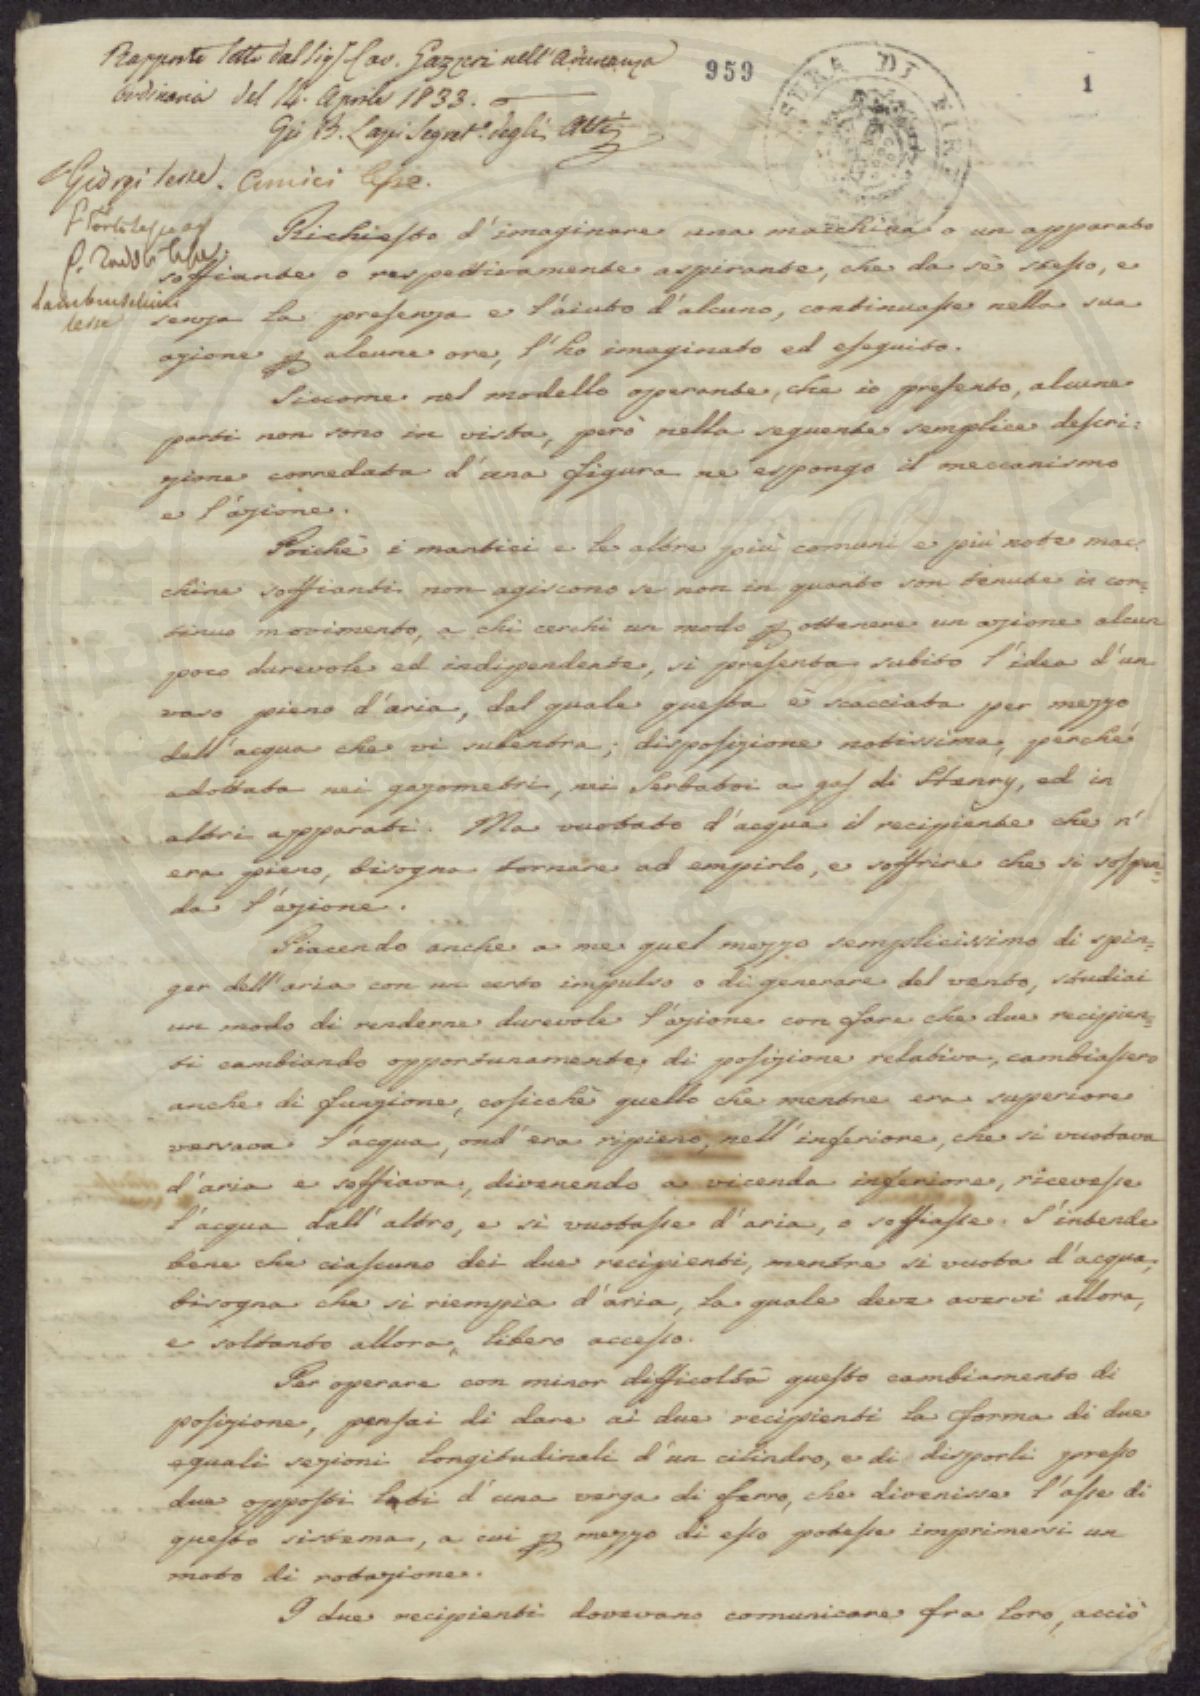 Rapporto letto dal Sigr. Cav. Gazzeri nell'Adunanza
ordinaria del 14. Aprile 1833.
Gio B. Lapi Segret.o degli Atti
959
1
Giorgi lesse. Amici lesse.
Lambruschini
lesse
Richiesto d'imaginare una macchina o un apparato
soffiante o respettivamente aspirante, che da sè stesso, e
senza la presenza e l'aiuto d'alcuno, continuasse nella sua
azione p alcune ore, l'ho imaginato ed eseguito.
Siccome nel modello operante, che io presento, alcune
parti non sono in vista, però nella seguente semplice descri:
zione corredata d'una figura ne espongo il meccanismo
e l'azione.
Poichè i mantici e le altre più comuni e più note mac:
chine soffianti non agiscono se non in quanto son tenute in con=
tinuo movimento, a chi cerchi un modo p ottenere un azione alcun
poco durevole ed indipendente, si presenta subito l'idea d'un
vaso pieno d'aria, dal quale questa è scacciata per mezzo
dell'acqua che vi subentra; disposizione notissima, perchè
adottata nei gazometri, nei Serbatoi a gas di Henry, ed in
altri apparati. Ma vuotato d'acqua il recipiente che n'
era pieno, bisogna tornare ad empirlo, e soffrire che si sospen=
da l'azione.
Piacendo anche a me quel mezzo semplicissimo di spin=
ger dell'aria con un certo impulso o di generare del vento, studiai
un modo di renderne durevole l'azione con fare che due recipien=
ti cambiando opportunamente di posizione relativa, cambiassero
anche di funzione, cosicchè quello che mentre era superiore
versava l'acqua, ond'era ripieno, nell'inferiore, che si vuotava
d'aria e soffiava, divenendo a vicenda inferiore, ricevesse
l'acqua dall'altro, e si vuotasse d'aria, o soffiasse. S'intende
bene che ciascuno dei due recipienti, mentre si vuota d'acqua,
bisogna che si riempia d'aria, la quale deve avervi allora,
e soltanto allora, libero accesso.
Per operare con minor difficoltà questo cambiamento di
posizione, pensai di dare ai due recipienti la forma di due
eguali sezioni longitudinali d'un cilindro, e di disporli presso
due opposti lati d'una verga di ferro, che divenisse l'asse di
questo sistema, a cui p mezzo di esso potesse imprimersi un
moto di rotazione.
I due recipienti dovevano comunicare fra loro, acciò